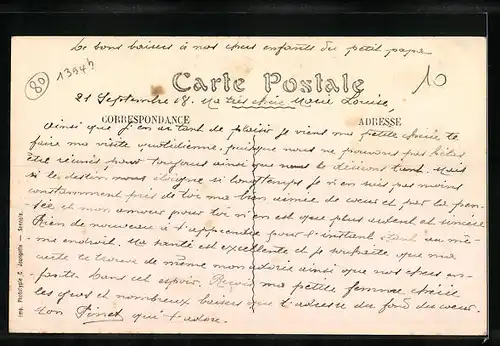 De bons baisers à nos chers enfants du petit papa
80
1394h
10
Carte Postale
21 Septembre 18. Ma très chère Marie Louise,
CORRESPONDANCE
ADRESSE
Ainsi que j'en ai tant de plaisir je viens ma petite chérie te
faire ma visite quotidienne, puisque nous ne pouvons pas hélas
être réunis pour toujours ainsi que nous le désirons tant. Mais
si le destin nous éloigne si longtemps je n'en suis pas moins
constamment près de toi ma bien aimée de cœur et par la pen-
sée et mon amour pour toi n'en est que plus ardent et sincère
Rien de nouveau à t'apprendre pour l'instant étant au mê-
me endroit. Ma santé est excellente et je souhaite que ma
carte te trouve de même mon adorée ainsi que nos chers en-
fants. Dans cet espoir. Reçois ma petite femme chérie
les gros et nombreux baisers que t'adresse du fond du cœur
ton Pinet qui t'adore.
Imp. Phototypie C. Jourgelle — Senlis.